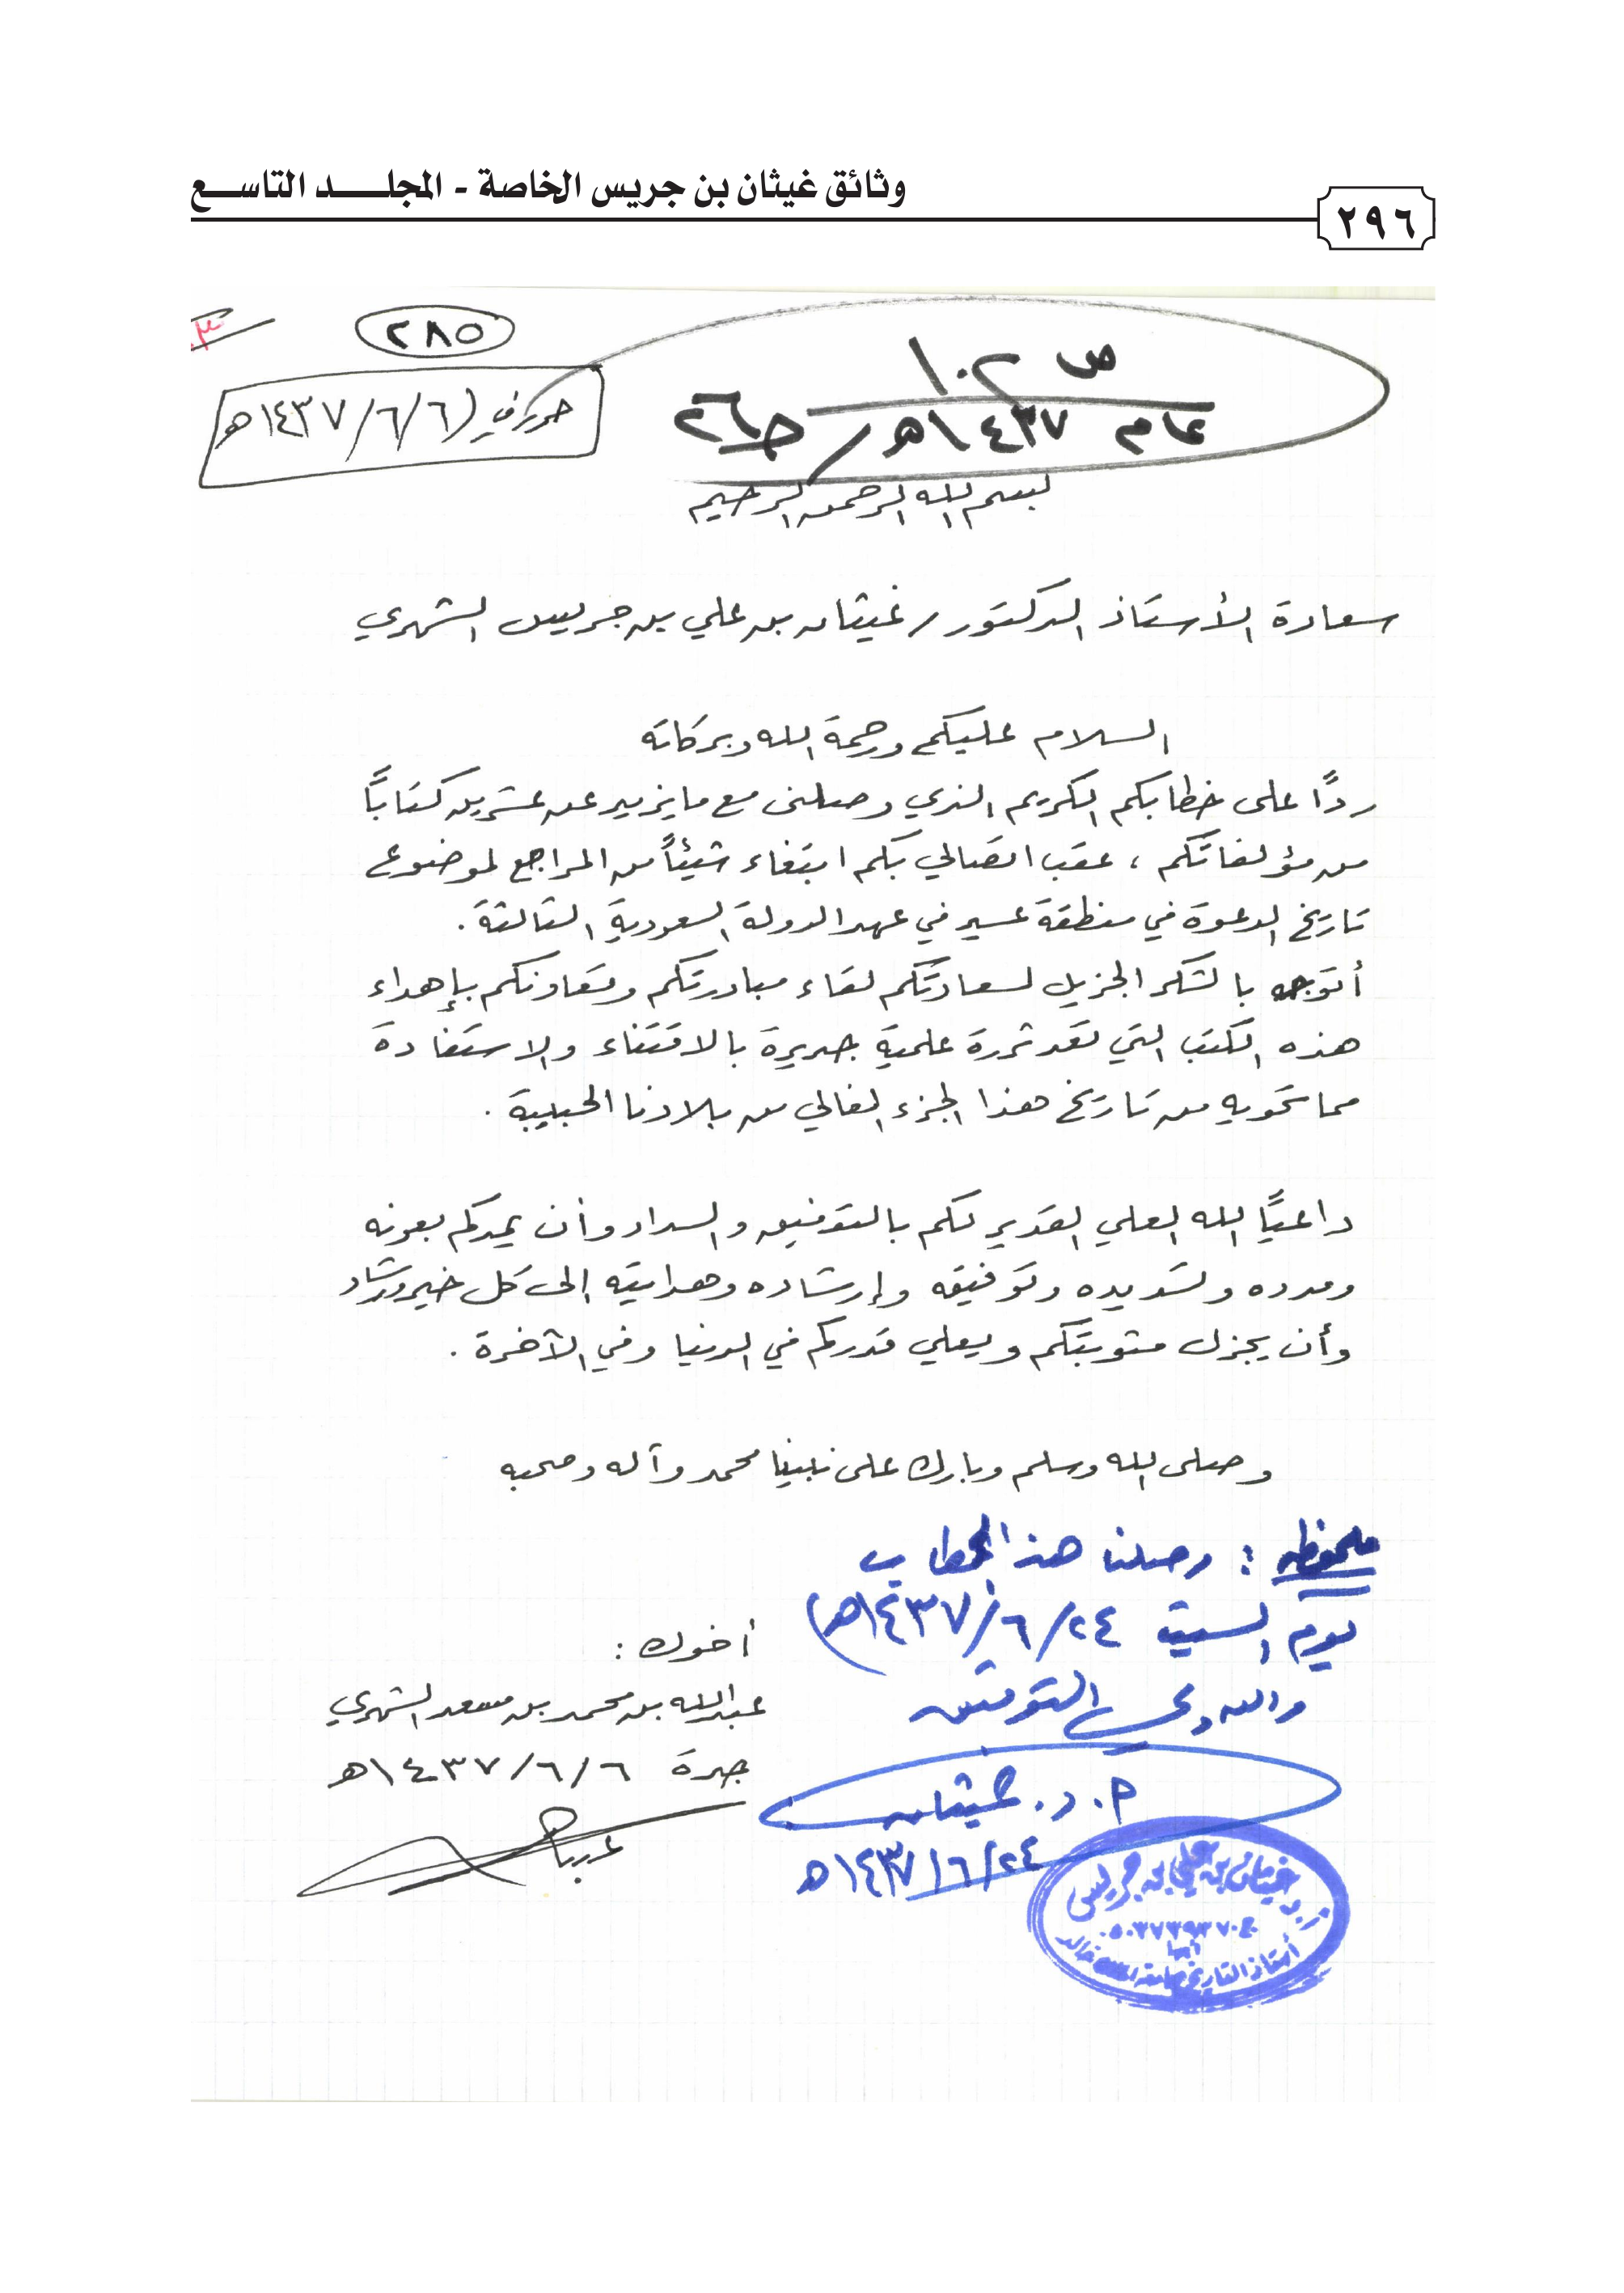 وثائق غيثان بن جريس الخاصة - المجلـــــد التاســـع
٢٩٦
٢٨٥
ص ١٠٢
عام ١٤٣٧هـ / جـ٢٦
حرر في (١٤٣٧/٦/٦هـ
بسم الله الرحمن الرحيم
سعادة الأستاذ الدكتور / غيثان بن علي بن جريس الشهري
السلام عليكم ورحمة الله وبركاته
ردًا على خطابكم الكريم الذي وصلني مع ما يزيد عن عشرين كتابًا
من مؤلفاتكم ، عقب اتصالي بكم ابتغاء شيئاً من المراجع لموضوع
تاريخ الدعوة في منطقة عسير في عهد الدولة السعودية الثالثة .
أتوجه بالشكر الجزيل لسعادتكم لقاء مبادرتكم وتعاونكم بإهداء
هذه الكتب التي تعد ثروة علمية جديرة بالاقتناء والاستفادة
مما تحويه من تاريخ هذا الجزء الغالي من بلادنا الحبيبة .
داعيًا الله العلي القدير لكم بالتوفيق والسداد وأن يمدكم بعونه
ومدده وتسديده وتوفيقه وإرشاده وهدايته إلى كل خير ورشاد
وأن يجزل مثوبتكم ويعلي قدركم في الدنيا وفي الآخرة .
وصلى الله وسلم وبارك على نبينا محمد وآله وصحبه
ملحوظه : وصلنا هذا الخطاب
يوم السبت ١٤٣٧/٦/٢٤هـ)
والله ولي التوفيق
أ. د. غيثان
١٤٣٧/٦/٢٤هـ
أخوك :
عبدالله بن محمد بن مسعد الشهري
جدة ١٤٣٧/٦/٦هـ
أ.د غيثان بن علي بن جريس
ج ٠٥٠٣٧٣٩٣٧٠
أبها
أستاذ التاريخ بجامعة الملك خالد